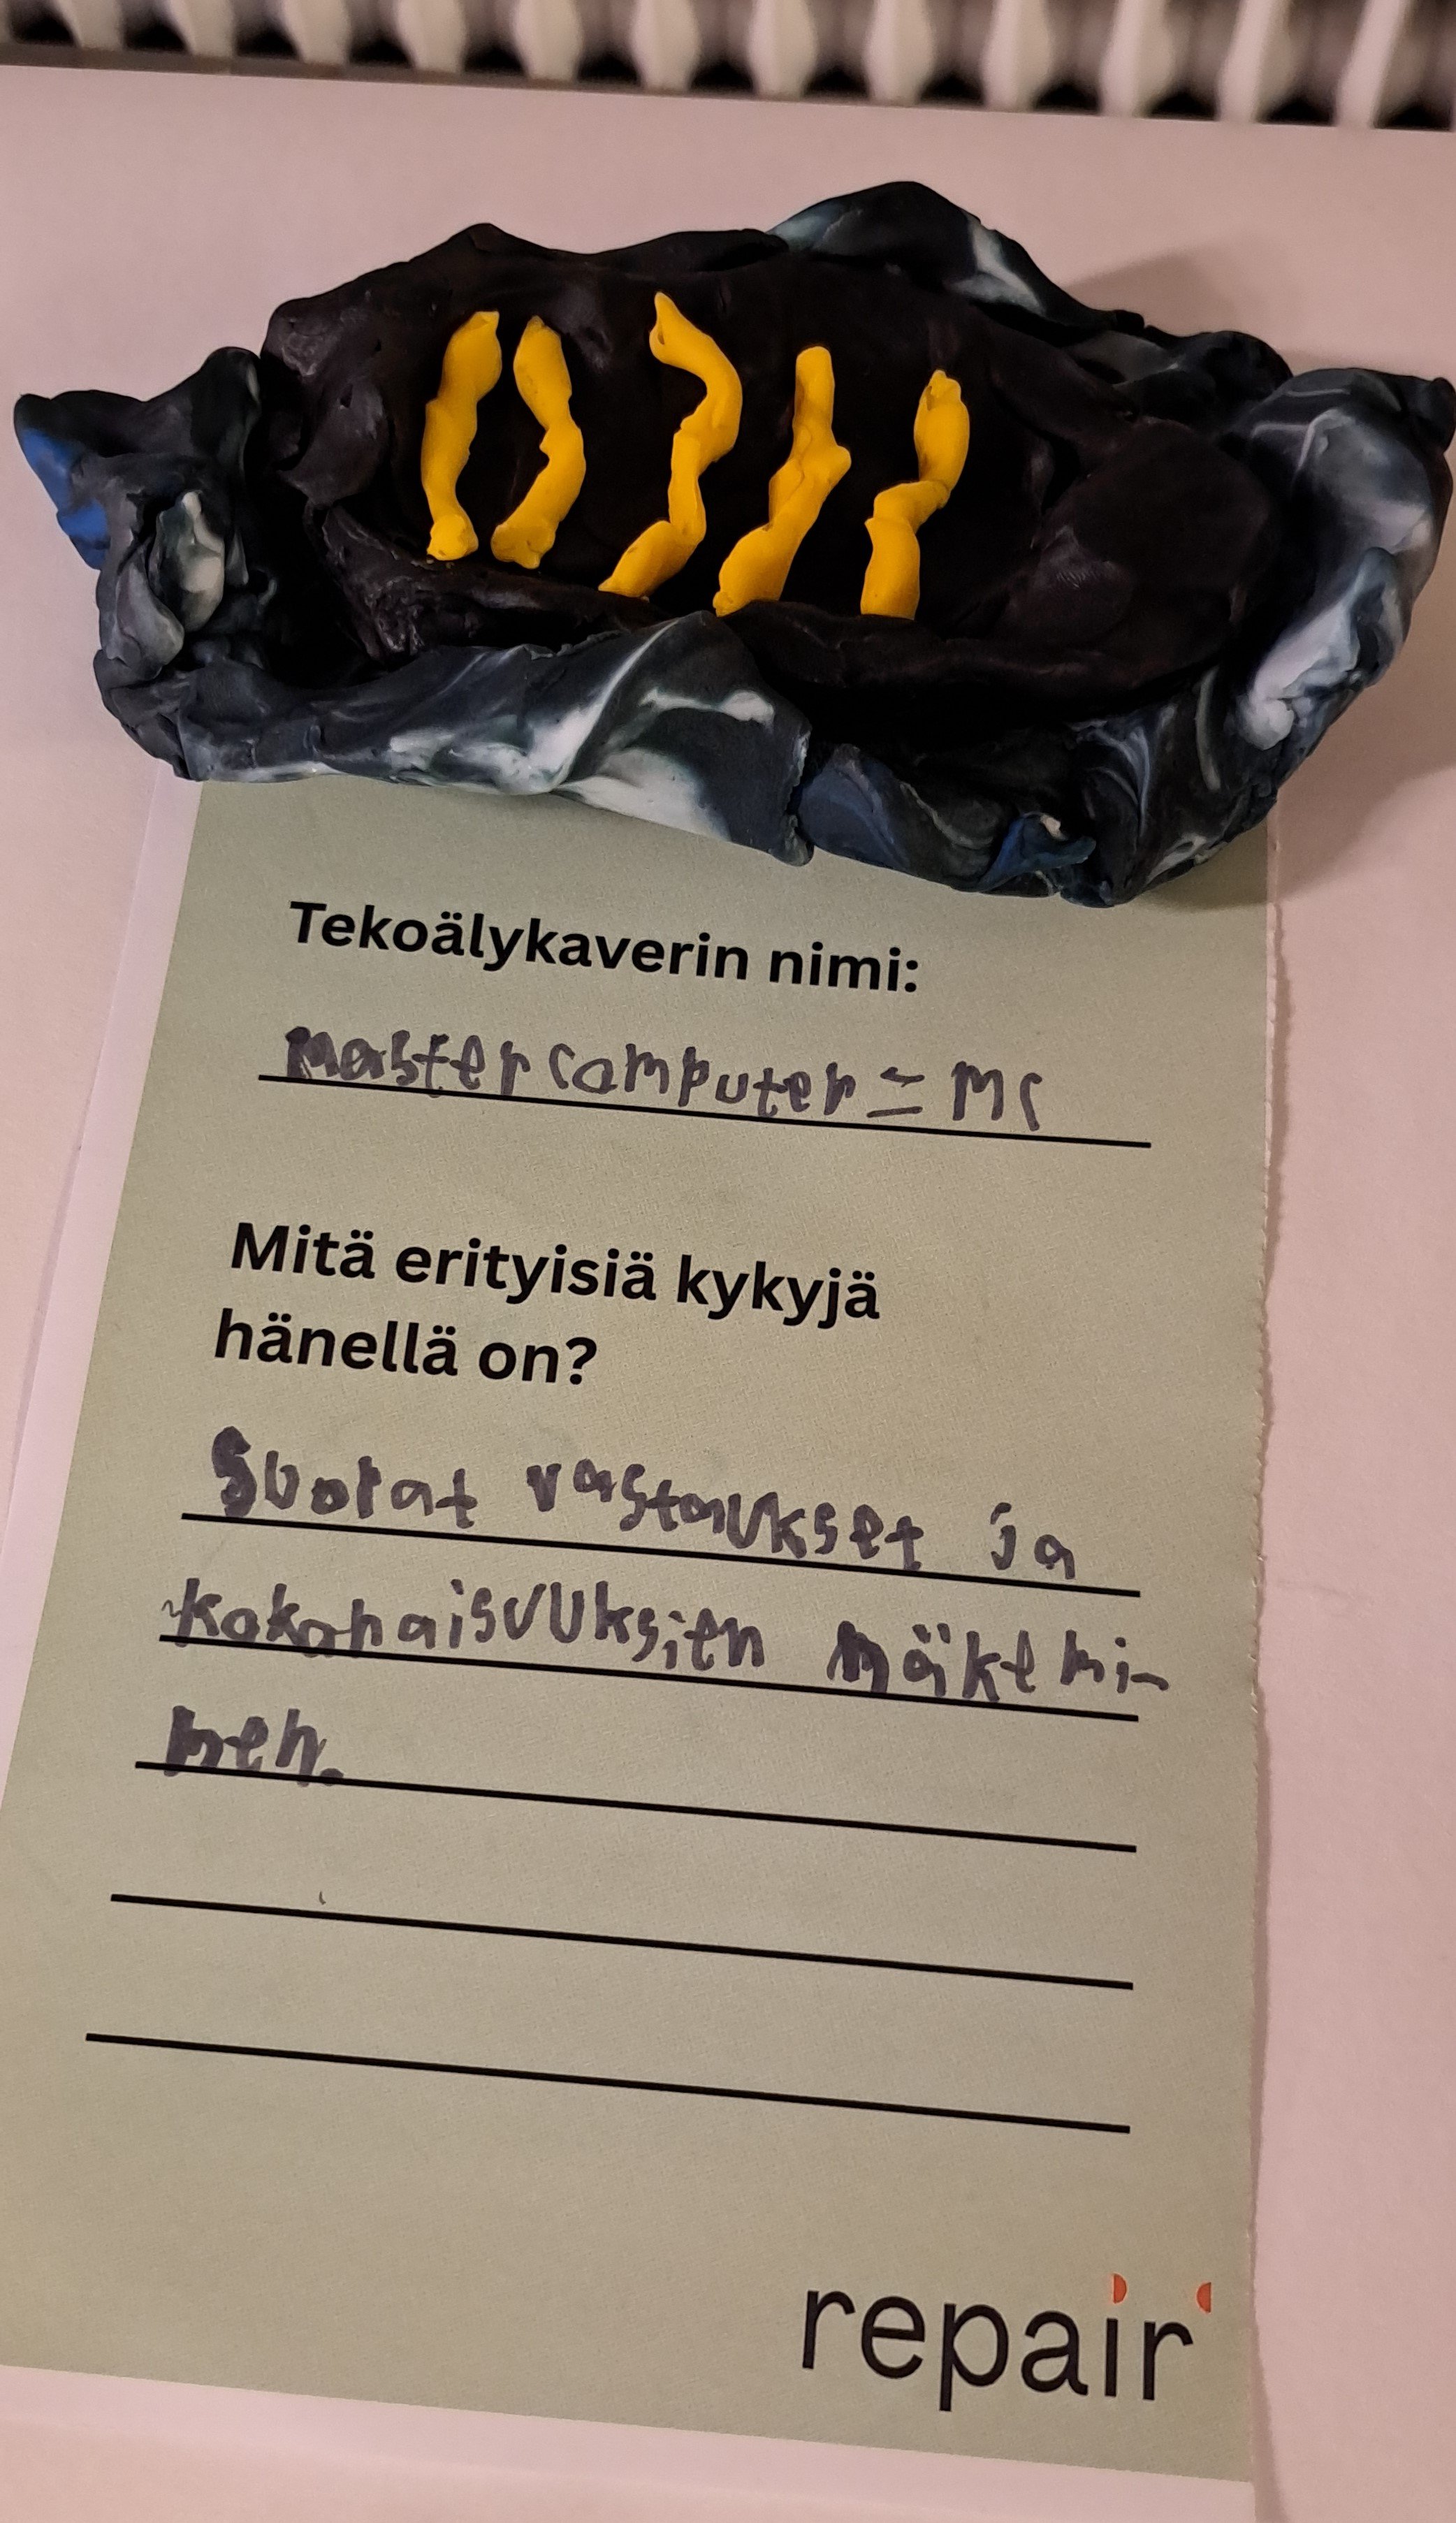 Tekoälykaverin nimi:
Master computer = MC
Mitä erityisiä kykyjä
hänellä on?
Suorat vastaukset ja
kokonaisuuksien näkemi-
nen.
repair